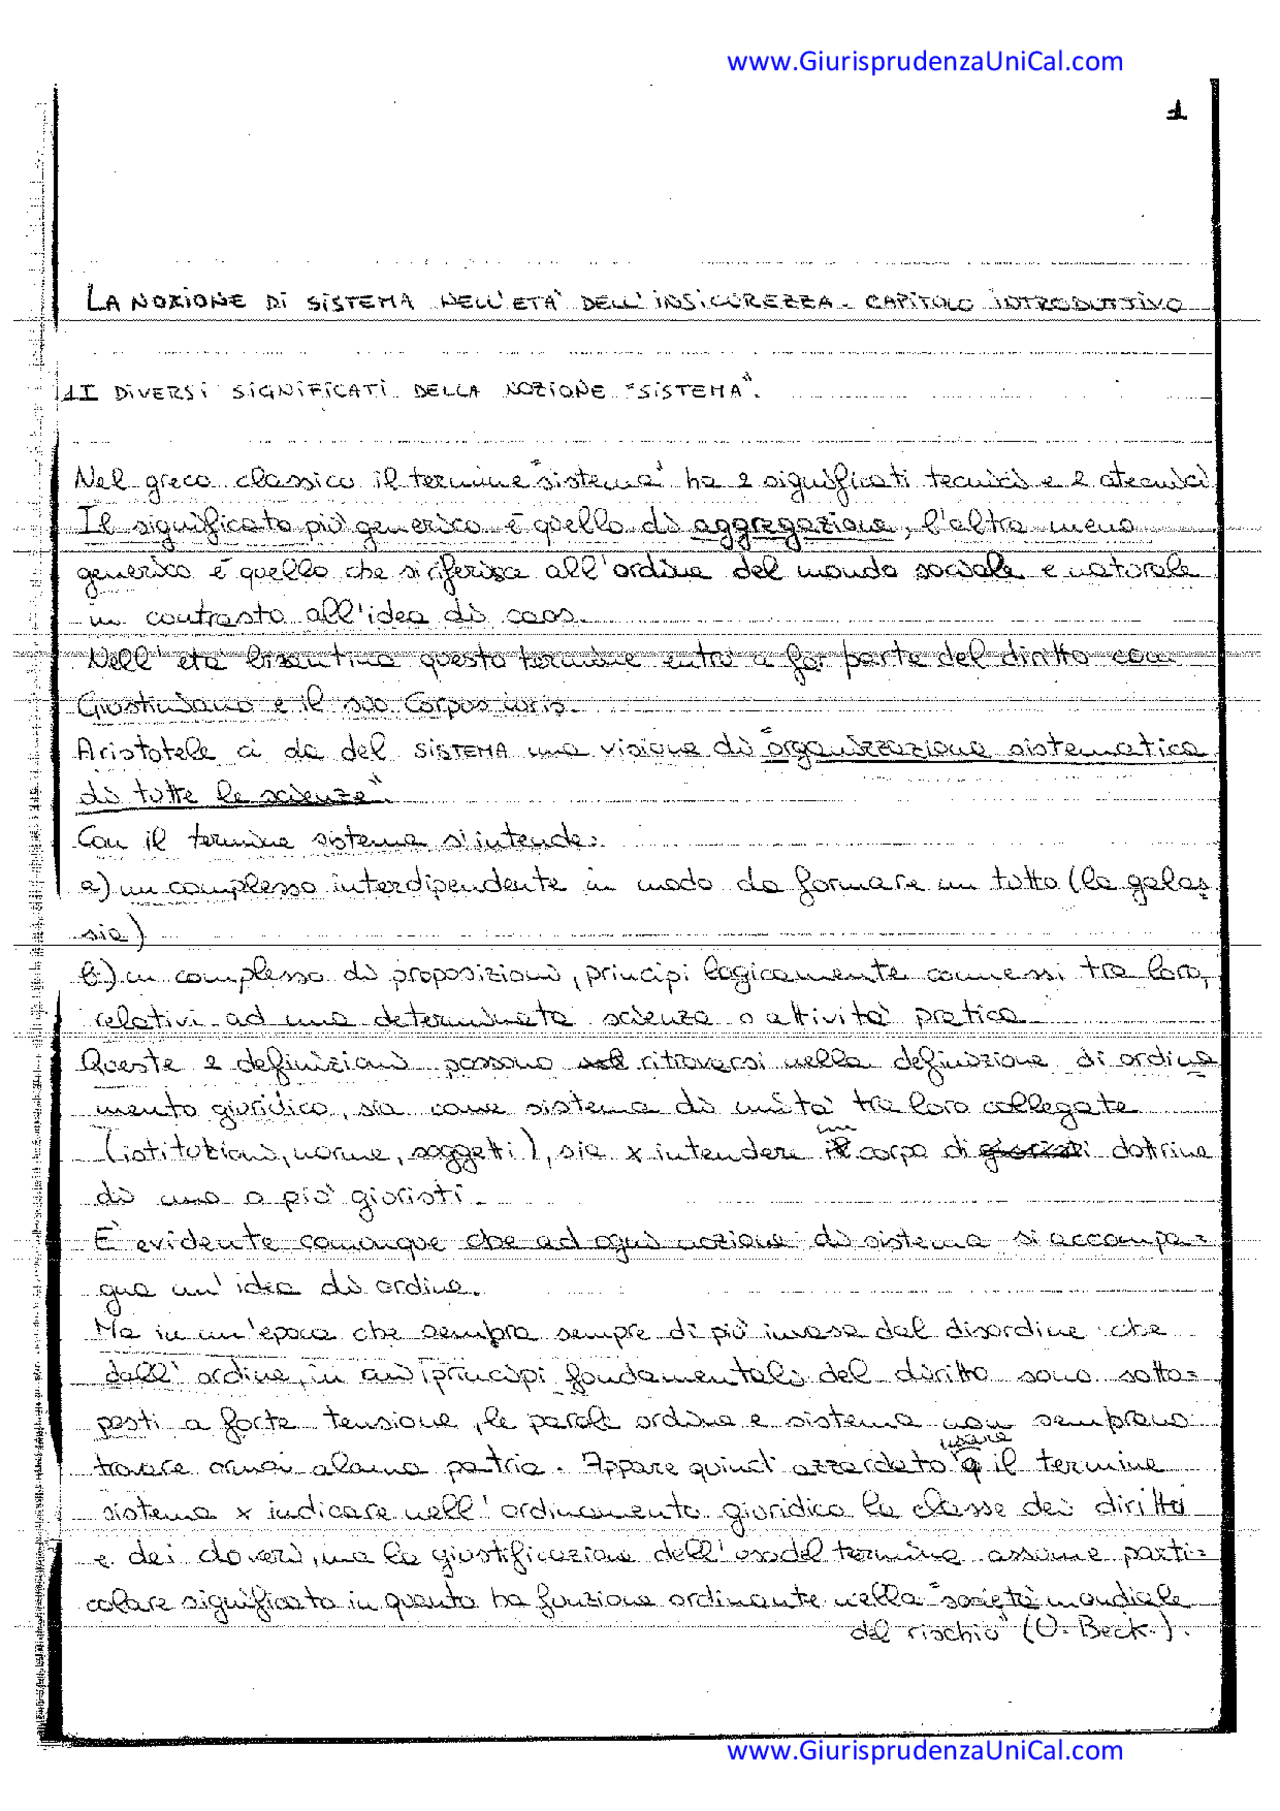 www.GiurisprudenzaUniCal.com
1
LA NOZIONE DI SISTEMA NELL'ETA' DELL'INSICUREZZA - CAPITOLO INTRODUTTIVO
1 I DIVERSI SIGNIFICATI DELLA NOZIONE "SISTEMA".
Nel greco classico il termine "sistema" ha 2 significati tecnici e 2 atecnici
Il significato più generico è quello di aggregazione, l'altro meno
generico è quello che si riferisce all'ordine del mondo sociale e naturale
in contrasto all'idea di caos.
Nell'età bizantina questo termine entrò a far parte del diritto con
Giustiniano e il suo Corpus iuris.
Aristotele ci da del SISTEMA una visione di "organizzazione sistematica
di tutte le scienze".
Con il termine sistema s'intende:
a) un complesso interdipendente in modo da formare un tutto (la galas=
sia)
b) un complesso di proposizioni, principi logicamente connessi tra loro,
relativi ad una determinata scienza o attività pratica.
Queste 2 definizioni possono ritrovarsi nella definizione di ordina
mento giuridico, sia come sistema di unità tra loro collegate
(istituzioni, norme, soggetti), sia x intendere un corpo di dottrine
di uno o più giuristi.
E' evidente comunque che ad ogni nozione di sistema si accompa=
gna un'idea di ordine.
Ma in un'epoca che sembra sempre di più invasa dal disordine che
dall'ordine, in cui i principi fondamentali del diritto sono sotto=
posti a forte tensione, le parole ordine e sistema non sembrano
trovare ormai alcuna patria. Appare quindi azzardato usare il termine
sistema x indicare nell'ordinamento giuridico la classe dei diritti
e dei doveri, ma la giustificazione dell'uso del termine assume parti=
colare significato in quanto ha funzione ordinante nella "società mondiale
del rischio" (U. Beck.).
www.GiurisprudenzaUniCal.com